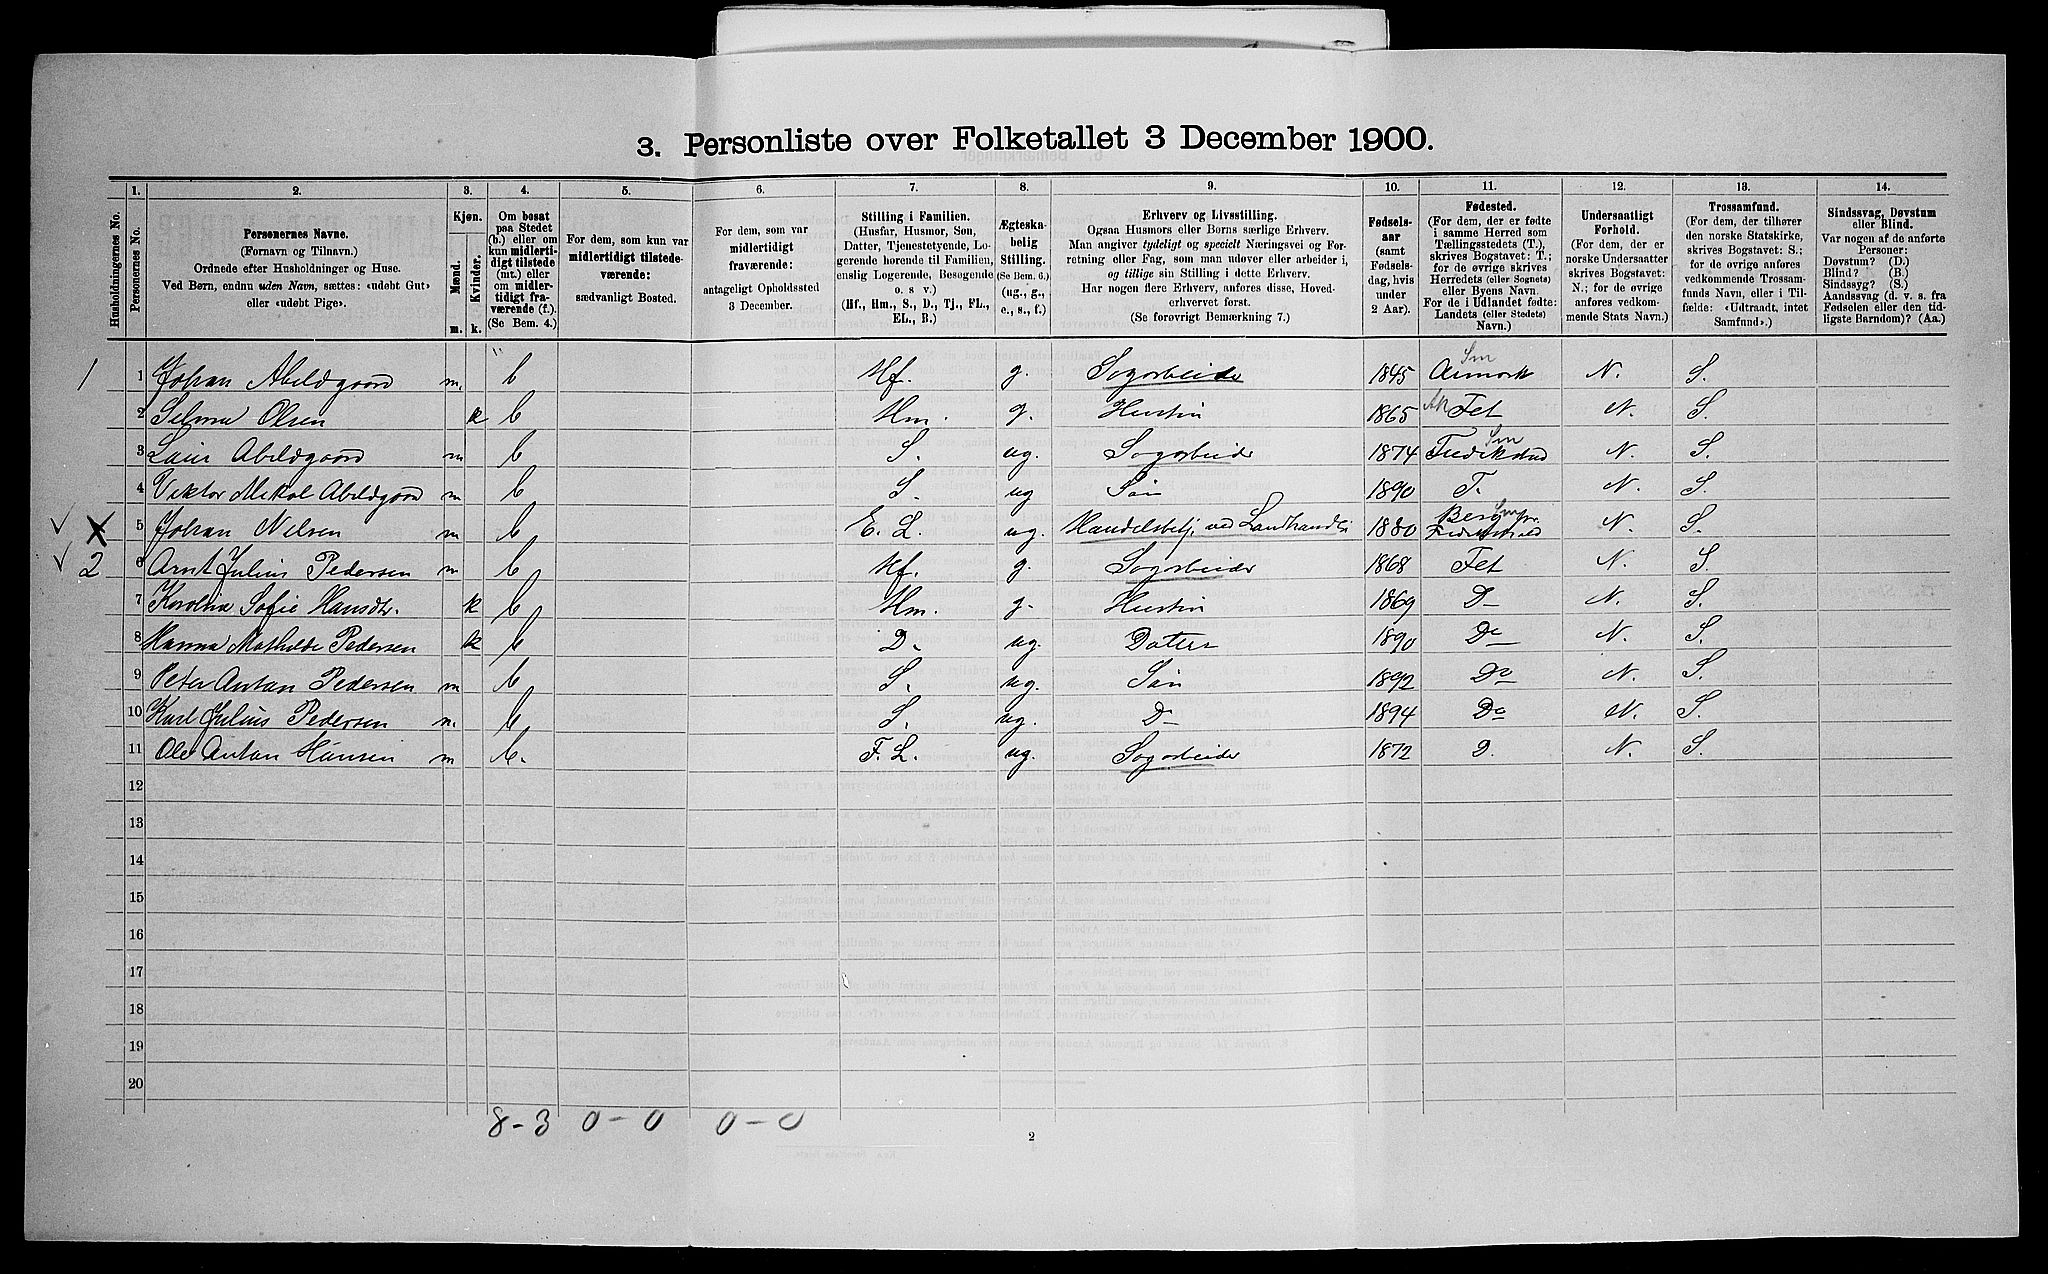 3. Personliste over Folketallet 3 December 1900.
Husholdningernes No.
1. Personernes No.
2. Personernes Navne.
(Fornavn og Tilnavn.)
Ordnede efter Husholdninger og Huse.
Ved Børn, endnu uden Navn, sættes: «udøbt Gut»
eller «udøbt Pige».
3. Kjøn.
Mænd. m.
Kvinder. k.
4. Om bosat
paa Stedet
(b.) eller om
kun midler-
tidigt tilstede
(mt.) eller
om midler-
tidigt fra-
værende (f.).
(Se Bem. 4.)
5. For dem, som kun var
midlertidigt tilstede-
værende:
sædvanligt Bosted.
6. For dem, som var
midlertidigt
fraværende:
antageligt Opholdssted
3 December.
7. Stilling i Familien.
(Husfar, Husmor, Søn,
Datter, Tjenestetyende, Lo-
gerende hørende til Familien,
enslig Logerende, Besøgende
o. s. v.)
(Hf., Hm., S., D., Tj., FL.,
EL., B.)
8. Ægteska-
belig
Stilling.
(Se Bem. 6.)
(ug., g.,
e., s., f.)
9. Erhverv og Livsstilling.
Ogsaa Husmors eller Børns særlige Erhverv.
Man angiver tydeligt og specielt Næringsvei og For-
retning eller Fag, som man udøver eller arbeider i,
og tillige sin Stilling i dette Erhverv.
Har nogen flere Erhverv, anføres disse, Hoved-
erhvervet først.
(Se forøvrigt Bemærkning 7.)
10. Fødsels-
aar
(samt
Fødsels-
dag, hvis
under
2 Aar).
11. Fødested.
(For dem, der er fødte
i samme Herred som
Tællingsstedets (T.),
skrives Bogstavet: T.;
for de øvrige skrives
Herredets (eller Sognets)
eller Byens Navn.
For de i Udlandet fødte:
Landets (eller Stedets)
Navn.)
12. Undersaatligt
Forhold.
(For dem, der er
norske Undersaatter
skrives Bogstavet:
N.; for de øvrige
anføres vedkom-
mende Stats Navn.)
13. Trossamfund.
(For dem, der tilhører
den norske Statskirke,
skrives Bogstavet: S.;
for de øvrige anføres
vedkommende Trossam-
funds Navn, eller i Til-
fælde: «Udtraadt, intet
Samfund».)
14. Sindssvag, Døvstum
eller Blind.
Var nogen af de anførte
Personer:
Døvstum? (D.)
Blind? (B.)
Sindssyg? (S.)
Aandssvag (d. v. s. fra
Fødselen eller den tid-
ligste Barndom)? (Aa.)
1 1 Johan Abeldgaard m. b Hf. g. Sagarbeide 1845 Sm Aremark N. S.
2 Selma Olsen k b Hm. g. Hustru 1865 Ak Fet N. S.
3 Abeldgaard m b S. ug. Sagarbeide 1874 Sm Fredrikstad N. S.
4 Viktor Mikal Abeldgaard m b S. ug Søn 1890 T. N. S.
5 Johan Nilsen m b E. L. ug. Handelsbetj. ved Landhandle 1880 Berg N. S.
2 6 Arnt Julius Pedersen m b Hf. g. Sagarbeide 1868 Fet N. S.
7 Karolina Sofie Hansdtr. k b Hm. g. Hustru 1869 D N. S.
8 Hanna Mathilde Pedersen k b D. ug. Datter 1890 Do N. S.
9 Peter Antan Pedersen m b S. ug. Søn 1892 Do N. S.
10 Karl Julius Pedersen m. b S. ug. D 1894 Do N. S.
11 Ole Antan Hansen m b. F. L. ug. Sagarbeide 1872 D. N. S.
12
13
14
15
16
17
18
19
20
8-3 0-0 0-0
2